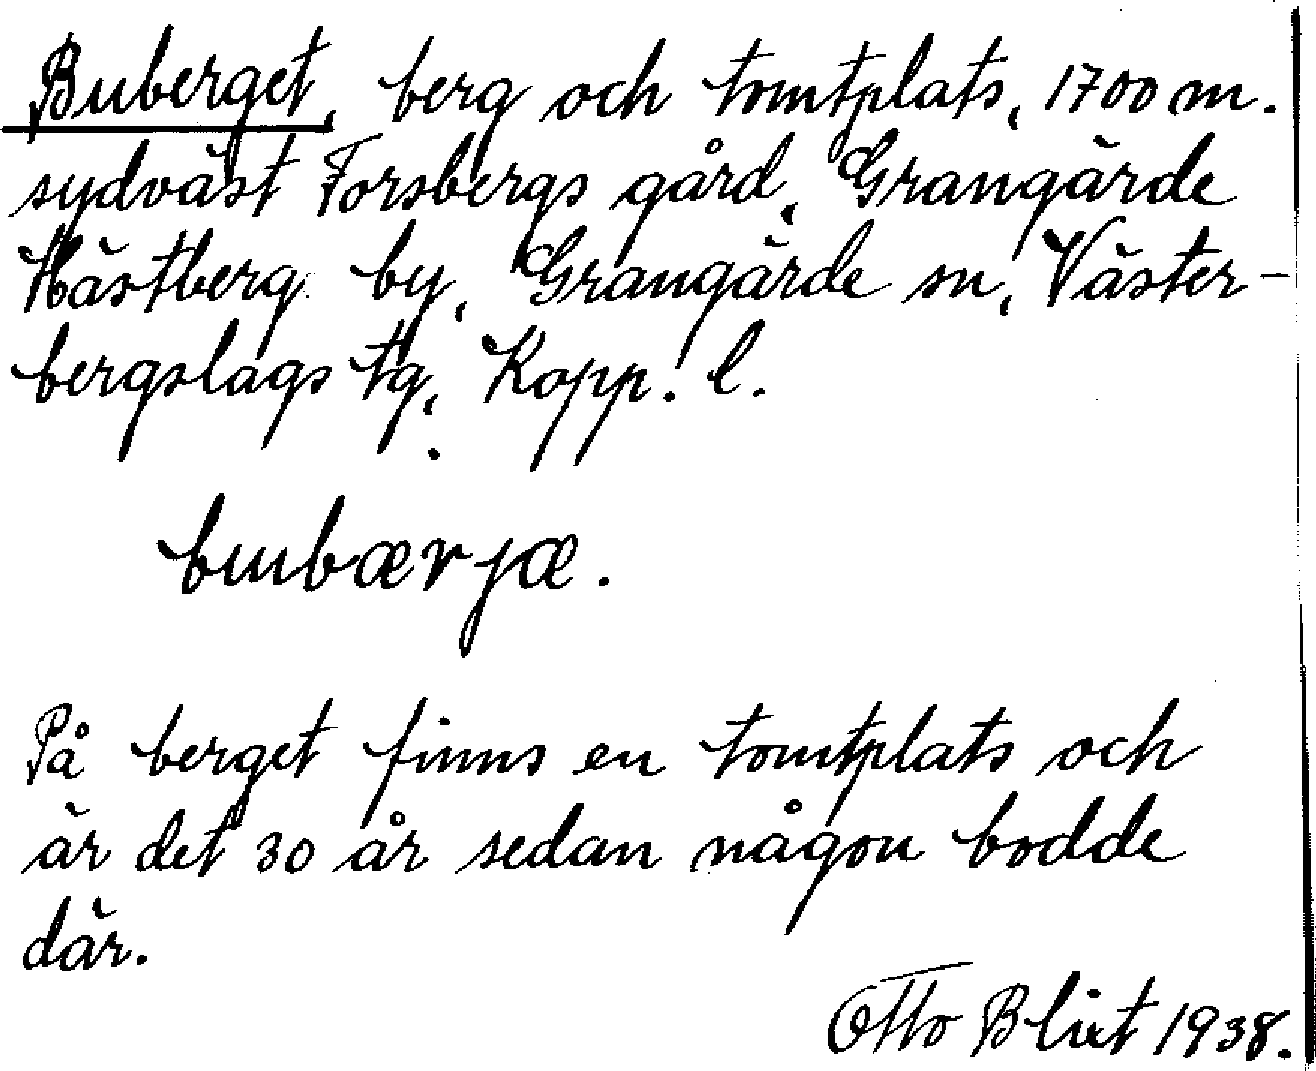 Buberget, berg och tomtplats, 1700 m.
sydväst Forsbergs gård, Grangärde
Hästberg by, Grangärde sn, Väster-
bergslags tg, Kopp. l.
bubærjæ.
På berget finns en tomtplats och
är det 30 år sedan någon bodde
där.
Otto Blixt 1938.